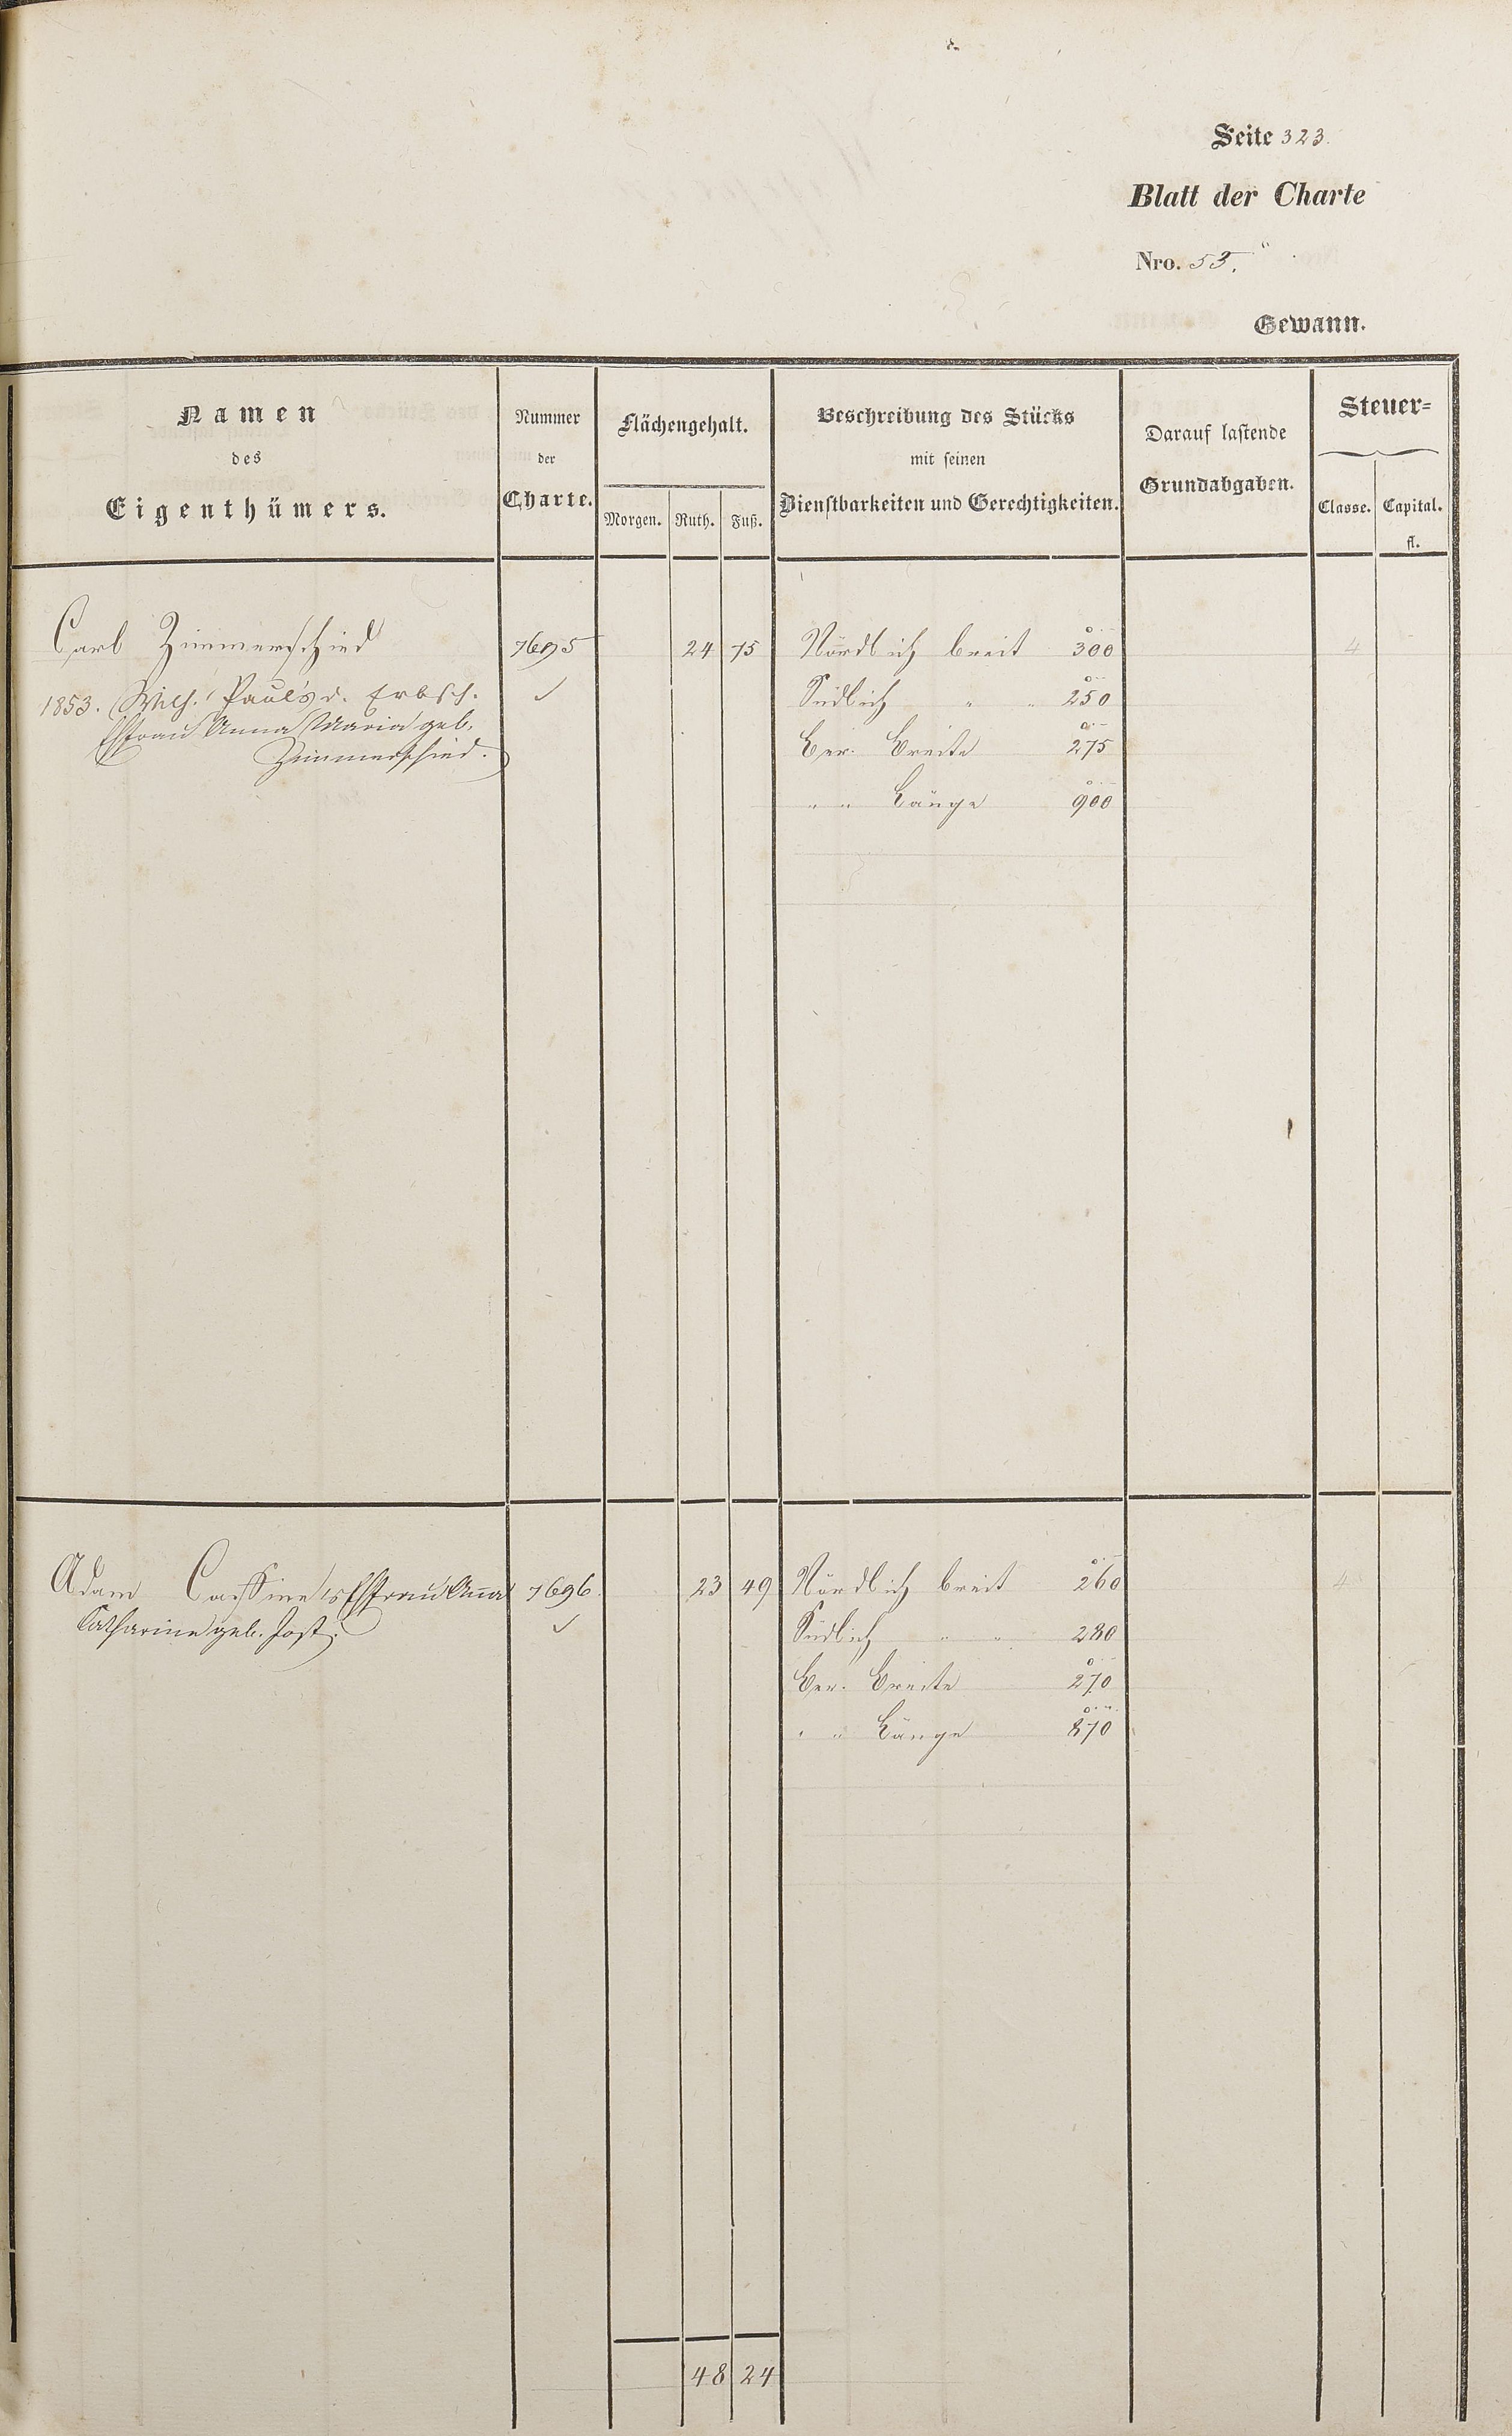 Seite 323.
Blatt der Charte
Nro. 53.
Gewann.
Namen
des
Eigenthümers.
Nummer
der
Charte.
Flächengehalt.
Morgen. Ruth. Fuß.
Beschreibung des Stücks
mit seinen
Dienstbarkeiten und Gerechtigkeiten.
Darauf lastende
Grundabgaben.
Steuer-
Classe. Capital.
fl.
Carl Zimmerschied 7695 24 75 Nördlich breit 300 4
1853. Wilh. Paul's d. Erbsch. Südlich " " 250
Ehfrau Anna Maria geb. Ger. Breite 275
Zimmerschied.
" " Länge 900
Adam Ehfrau Anna 7696. 23 49 Nördlich breit 260 4
Catharine geb. Jost. Südlich " " 280
Ger. Breite 270
" " Länge 870
48 24